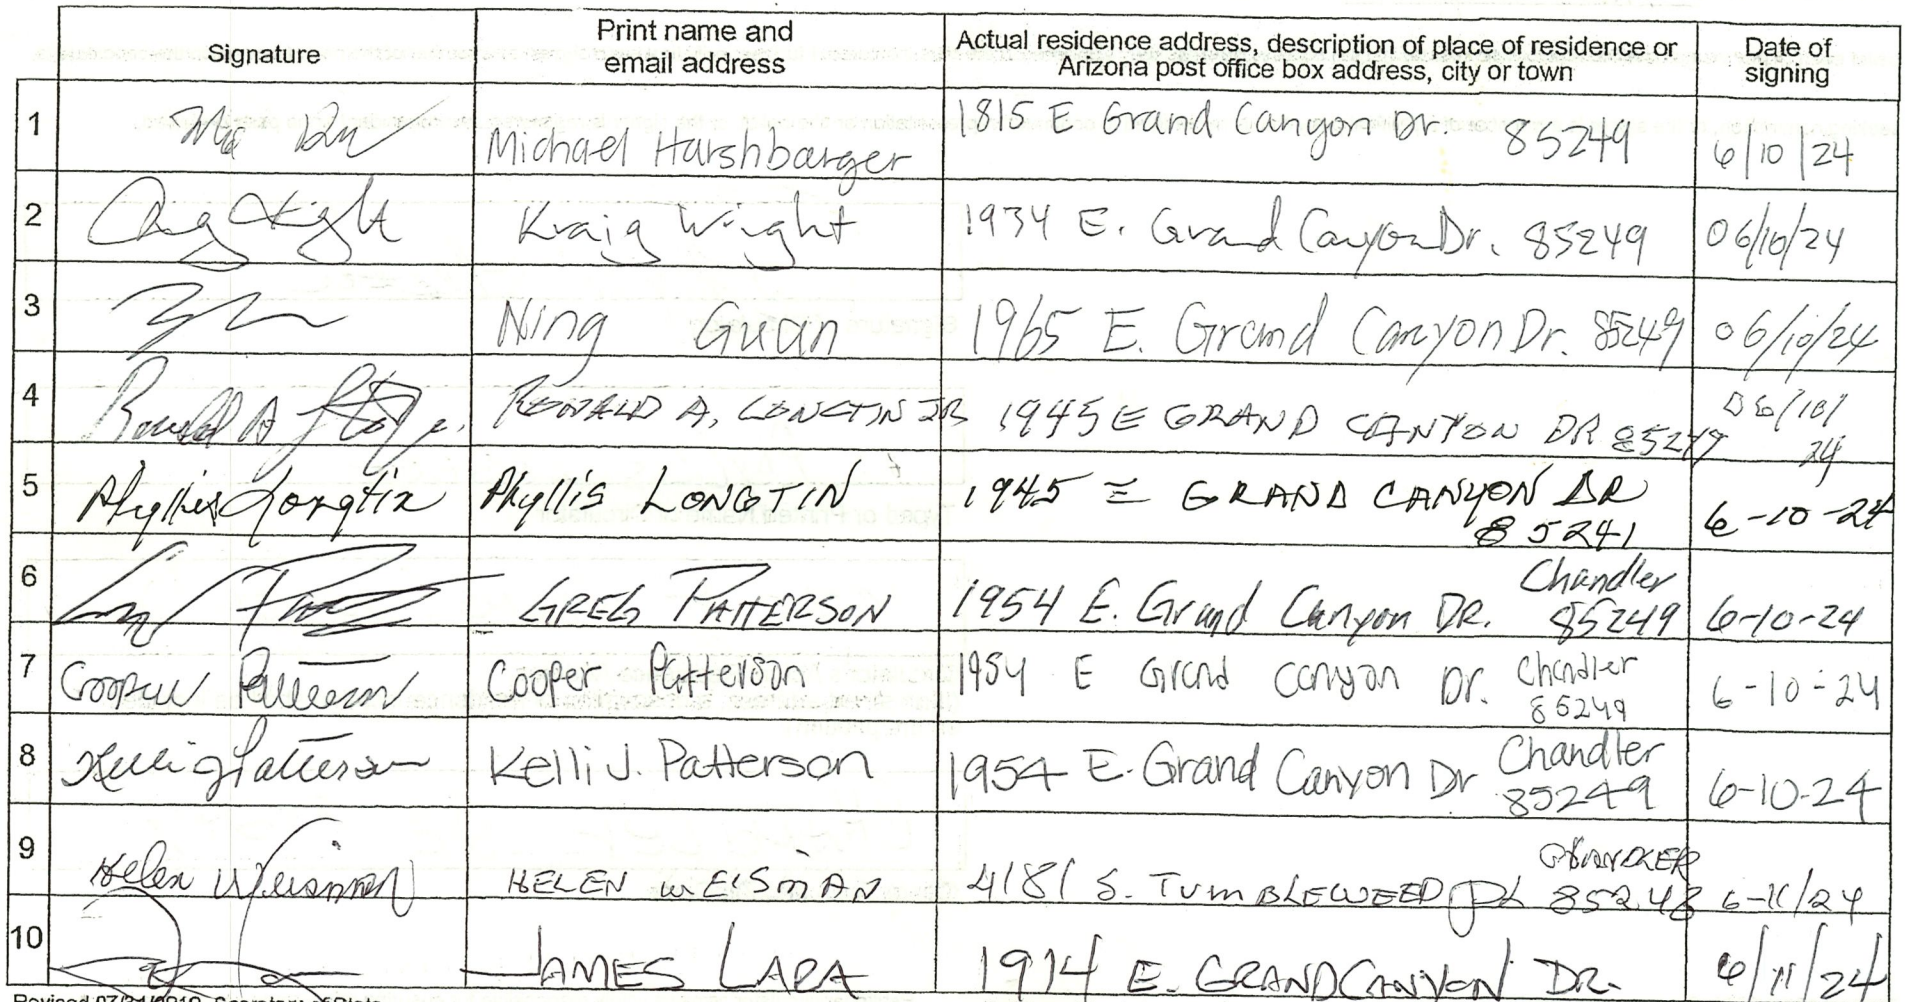 Signature
Print name and
email address
Actual residence address, description of place of residence or
Arizona post office box address, city or town
Date of
signing
1
Michael Harshbarger
1815 E Grand Canyon Dr. 85249
6/10/24
2
Kraig Wright
1934 E. Grand Canyon Dr. 85249
06/10/24
3
Ning Guan
1965 E. Grand Canyon Dr. 85249
06/10/24
4
Ronald A
RONALD A. LONGTIN JR
1945 E GRAND CANYON DR 85249
06/10/
24
5
Phyllis Longtin
Phyllis LONGTIN
1945 E GRAND CANYON DR
85241
6-10-24
6
GREG PATTERSON
1954 E. Grand Canyon DR.
Chandler
85249
6-10-24
7
Cooper Patterson
Cooper Patterson
1954 E Grand Canyon Dr.
Chandler
85249
6-10-24
8
Kelli J Patterson
Kelli J. Patterson
1954 E. Grand Canyon Dr
Chandler
85249
6-10-24
9
Helen Weisman
HELEN WEISMAN
4181 S. TUMBLEWEED PL
CHANDLER
85248
6-11/24
10
JAMES LARA
1914 E. GRAND CANYON DR.
6/11/24